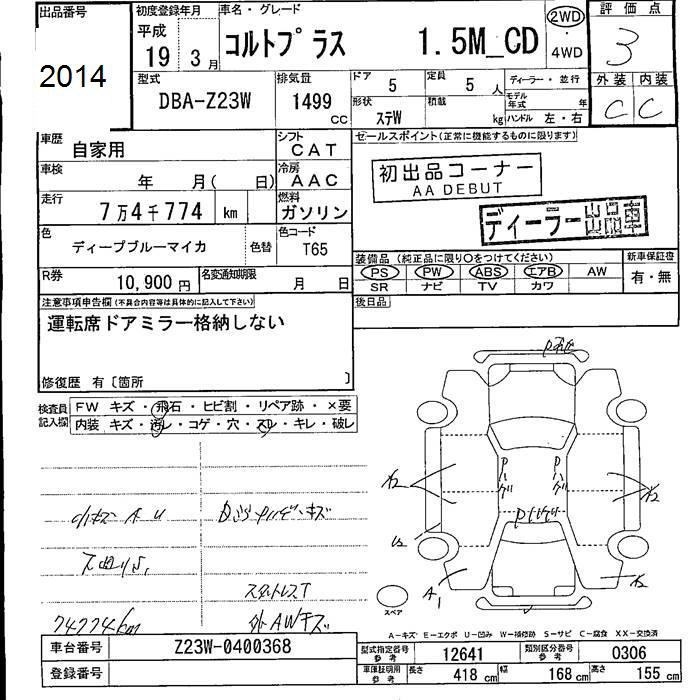 出品番号
2014
初度登録年月
平成
19 3 月
車名・グレード
コルトプラス 1.5M_CD
2WD
・
4WD
評価点
3
外装 内装
C C
型式
DBA-Z23W
排気量
1499
CC
ドア 5
定員 5 人
形状 ステW
積載 kg
ディーラー・並行
モデル年式 年
ハンドル 左・右
車歴
自家用
シフト
CAT
車検
年 月( 日)
冷房
AAC
走行
7万4千774 km
燃料
ガソリン
色
ディープブルーマイカ
色替
色コード
T65
R券
10,900 円
名変通知期限
月 日
セールスポイント(正常に機能するものに限ります)
初出品コーナー
AA DEBUT
ディーラー出品車
装備品(純正品に限り○をつけてください)
PS PW ABS エアB AW
SR ナビ TV カワ
新車保証書
有・無
後日品
注意事項申告欄(不具合内容等は具体的に記入して下さい)
運転席ドアミラー格納しない
修復歴 有〔箇所 〕
検査員
記入欄
FW キズ・飛石・ヒビ割・リペア跡・×要
内装 キズ・汚レ・コゲ・穴・スレ・キレ・破レ
小キズ A U
スタットレスT
外AWキズ
74774km
A1
スペア
A-キズ E-エクボ U-凹み W-補修跡 S-サビ C-腐食 XX-交換済
車台番号
Z23W-0400368
登録番号
型式指定番号
参考
12641
類別区分番号
参考
0306
車庫証明用
参考
長さ 418 cm
幅 168 cm
高さ 155 cm